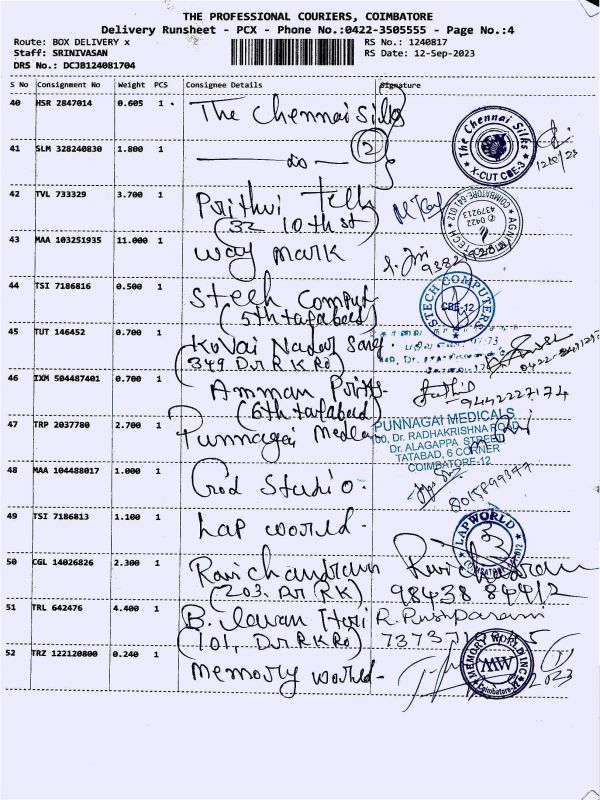 THE PROFESSIONAL COURIERS, COIMBATORE
Delivery Runsheet - PCX - Phone No.:0422-3505555 - Page No.:4
Route: BOX DELIVERY x
RS No.: 1240817
Staff: SRINIVASAN
RS Date: 12-Sep-2023
DRS No.: DCJB124081704
S No Consignment No Weight PCS Consignee Details Signature
40 HSR 2847014 0.605 1 The Chennai Silks
The Chennai Silks
X-CUT CBE-3
41 SLM 328240830 1.800 1 do 2
42 TVL 733329 3.700 1 Prithvi Tell
(32 10th st)
COIMBATORE-641 012
0422
4379213
AGNITECH
43 MAA 103251935 11.000 1 way mark
44 TSI 7186816 0.500 1 Steeh Comput
(5th tatabad)
STECH COMPUTERS
CBE-12
45 TUT 146452 0.700 1 Kovai Nadar Sang
(349 Dr R K Rd)
46 IXM 504487401 0.700 1 Amman Prits
(6th tatabad)
9442227174
47 TRP 2037780 2.700 1 Punnagai Medical
PUNNAGAI MEDICALS
00, Dr. RADHAKRISHNA ROAD
Dr. ALAGAPPA STREET
TATABAD, 6 CORNER
COIMBATORE-12
48 MAA 104488017 1.000 1 God Studio
49 TSI 7186813 1.100 1 Lap world-
LAPWORLD
50 CGL 14026826 2.300 1 Ravichandran
(203, Dr R K)
Ravichandran
98438 84412
51 TRL 642476 4.400 1 B.
(101, Dr R K Rd)
R. Pushparani
52 TRZ 122120800 0.240 1 memory world-
MEMORY WORLD INC
MW
Coimbatore-12